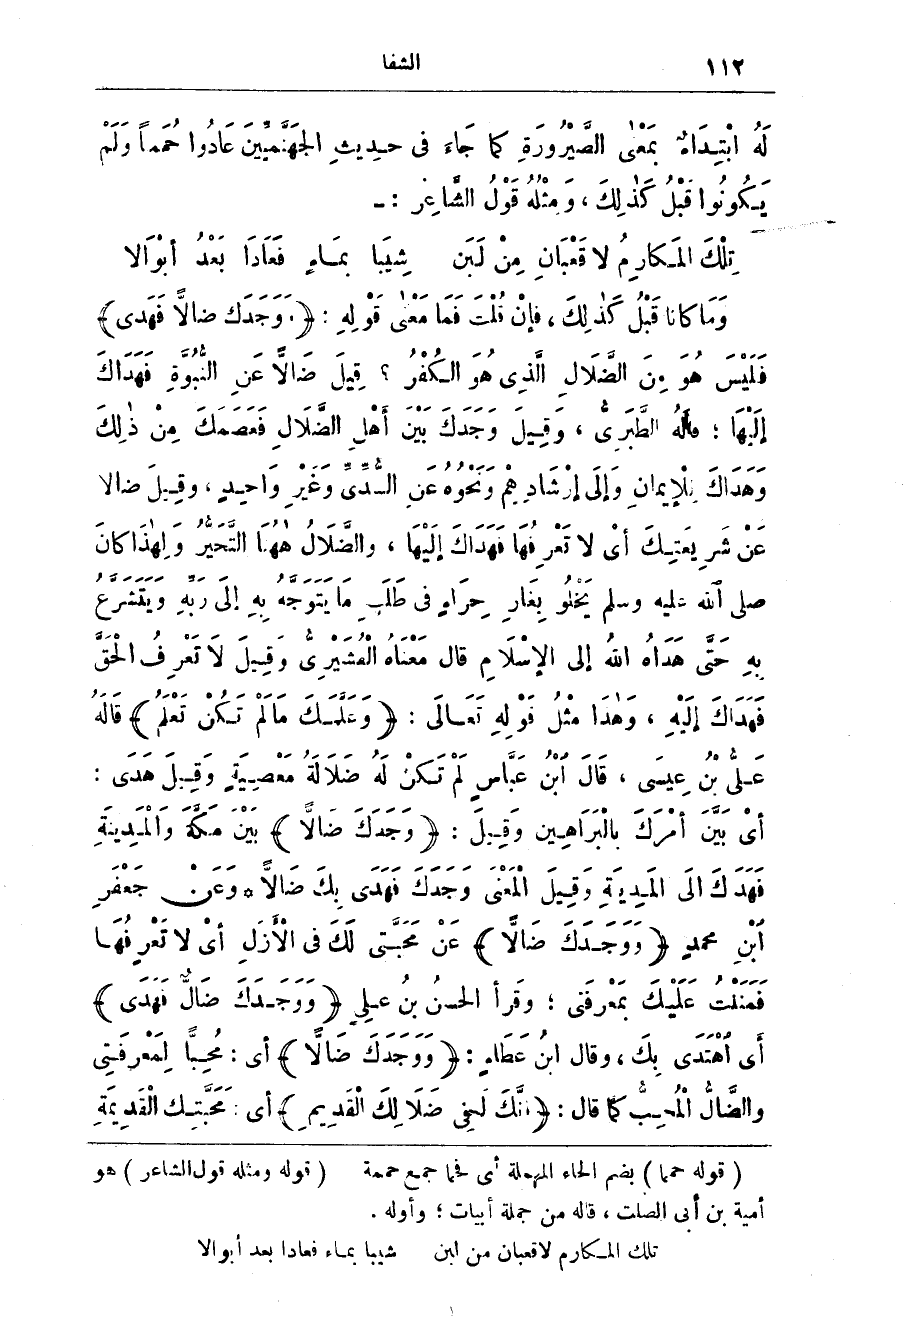 ١١٢ الشفا
لَهُ ابْتِدَاءٌ بِمَعْنَى الصَّيْرُورَةِ كَمَا جَاءَ فى حديثِ الجَهَنَّمِيِّينَ عَادُوا حُمَماً وَلَمْ
يَكُونُوا قَبْلُ كَذٰلِكَ ، وَمِثْلُهُ قَوْلُ الشَّاعِرِ : ـ
تِلْكَ المَكَارِمُ لَا قَعْبَانِ مِنْ لَبَنٍ شِيبَا بِمَاءٍ فَعَادَا بَعْدُ أَبْوَالا
وَمَا كانا قَبْلُ كَذٰلِكَ ، فإنْ قُلْتَ فَمَا مَعْنَى قَوْلِهِ : ﴿ وَوَجَدَكَ ضالًّا فَهَدَى ﴾
فَلَيْسَ هُوَ مِنَ الضَّلَالِ الَّذِى هُوَ الكُفْرُ ؟ قِيلَ ضَالًّا عَنِ النُّبُوَّةِ فَهَدَاكَ
إلَيْهَا ؛ قَالَهُ الطَّبَرِىُّ ، وَقِيلَ وَجَدَكَ بَيْنَ أَهْلِ الضَّلَالِ فَعَصَمَكَ مِنْ ذٰلِكَ
وَهَدَاكَ لِلْإِيمَانِ وَإِلَى إرْشَادِهِمْ وَنَحْوُهُ عَنِ السُّدِّىِّ وَغَيْرِ وَاحِدٍ ، وقِيلَ ضالا
عَنْ شَرِيعَتِكَ أىْ لا تَعْرِفُهَا فَهَدَاكَ إلَيْهَا ، والضَّلَالُ هٰهُنَا التَّحَيُّرُ وَلِهٰذَا كانَ
صلى الله عليه وسلم يَخْلُو بِغَارِ حِرَاءٍ فى طَلَبِ مَا يَتَوَجَّهُ بِهِ إلَى رَبِّهِ وَيَتَشَرَّعُ
بِهِ حَتَّى هَدَاهُ اللهُ إلى الإِسْلَامِ قال مَعْنَاهُ القُشَيْرِىُّ وَقِيلَ لَا تَعْرِفُ الحَقَّ
فَهَدَاكَ إلَيْهِ ، وَهٰذَا مِثْلُ قَوْلِهِ تَعَالَى : ﴿ وَعَلَّمَكَ مَالَمْ تَكُنْ تَعْلَمُ ﴾ قَالَهُ
عَلِىُّ بْنُ عِيسَى ، قَالَ ابْنُ عَبَّاسٍ لَمْ تَكُنْ لَهُ ضَلَالَةُ مَعْصِيَةٍ وَقِيلَ هَدَى :
أىْ بَيَّنَ أَمْرَكَ بِالْبَرَاهِينِ وَقِيلَ : ﴿ وَجَدَكَ ضَالًّا ﴾ بَيْنَ مَكَّةَ وَالْمَدِينَةِ
فَهَدَاكَ الَى المَدِينَةِ وَقِيلَ الْمَعْنَى وَجَدَكَ فَهَدَى بِكَ ضَالًّا * وَعَنْ جَعْفَرِ
ابْنِ محمدٍ ﴿ وَوَجَدَكَ ضَالًّا ﴾ عَنْ مَحَبَّتِى لَكَ فى الأَزَلِ أىْ لا تَعْرِفُهَا
فَمَنَنْتُ عَلَيْكَ بِمَعْرِفَتِى ؛ وَقَرأَ الحَسَنُ بنُ عَلِىٍّ ﴿ وَوَجَدَكَ ضَالٌّ فَهَدَى ﴾
أى اهْتَدَى بِكَ ، وقال ابنُ عَطَاءٍ : ﴿ وَوَجَدَكَ ضَالًّا ﴾ أى : مُحِبًّا لِمَعْرِفَتِى
والضَّالُّ الْمُحِبُّ كما قال : ﴿ انَّكَ لَفِى ضَلَالِكَ الْقَدِيمِ ﴾ أى : مَحَبَّتِكَ القَدِيمَةِ
( قوله حمما ) بضم الحاء المهملة أى فحما جمع حممة ( قوله ومثله قول الشاعر ) هو
أمية بن أبى الصلت ، قاله من جملة أبيات ؛ وأوله .
تلك المكارم لا قعبان من لبن شيبا بماء فعادا بعد أبوالا